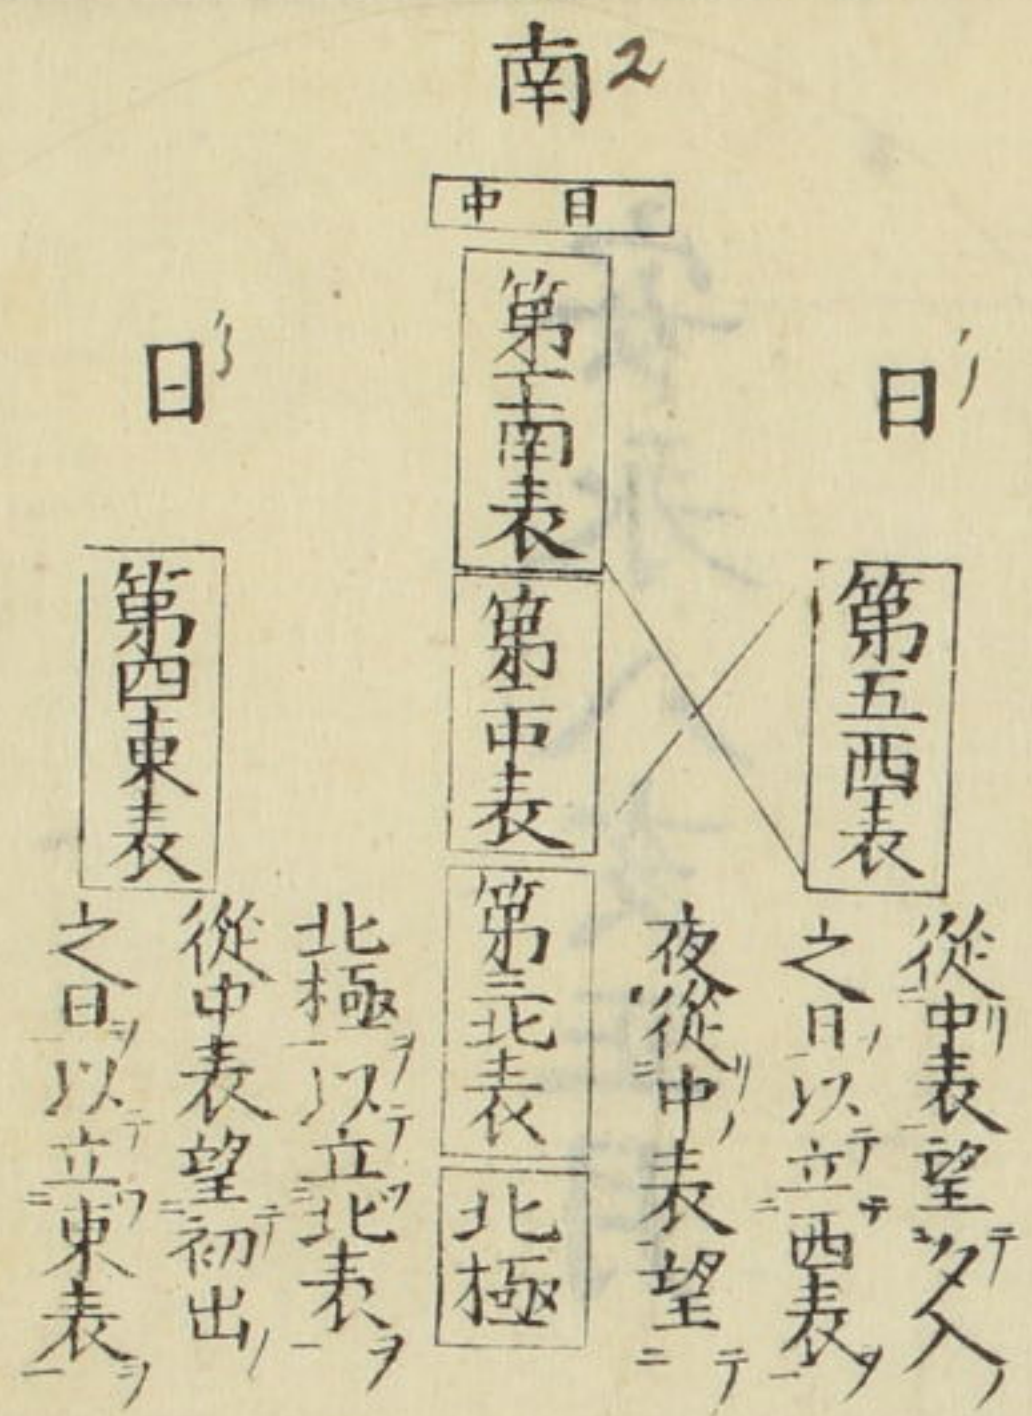 南
日中
日
日
第五西表
第一南表
第二中表
第三北表
北極
第四東表
從中表望夕入
之日以立西表
夜從中表望
北極以立北表
從中表望初出
之日以立東表